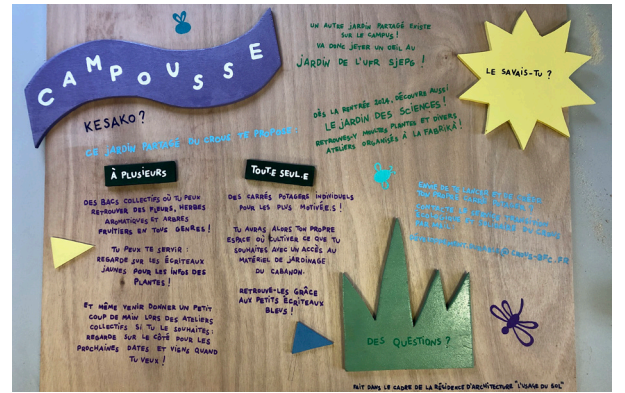 CAMPOUSSE
KESAKO?
CE JARDIN PARTAGÉ DU CROUS TE PROPOSE :
À PLUSIEURS
DES BACS COLLECTIFS OÙ TU PEUX
RETROUVER DES FLEURS, HERBES
AROMATIQUES ET ARBRES
FRUITIERS EN TOUS GENRES!
TU PEUX TE SERVIR :
REGARDE SUR LES ÉCRITEAUX
JAUNES POUR LES INFOS DES
PLANTES!
ET MÊME VENIR DONNER UN PETIT
COUP DE MAIN LORS DES ATELIERS
COLLECTIFS SI TU LE SOUHAITES:
REGARDE SUR LE CÔTÉ POUR LES
PROCHAINES DATES ET VIENS QUAND
TU VEUX!
TOUT.E SEUL.E
DES CARRÉS POTAGERS INDIVIDUELS
POUR LES PLUS MOTIVÉ.E.S!
TU AURAS ALORS TON PROPRE
ESPACE OÙ CULTIVER CE QUE TU
SOUHAITES AVEC UN ACCÈS AU
MATÉRIEL DE JARDINAGE
DU CABANON.
RETROUVE-LES GRÂCE
AUX PETITS ÉCRITEAUX
BLEUS!
UN AUTRE JARDIN PARTAGÉ EXISTE
SUR LE CAMPUS!
VA DONC JETER UN ŒIL AU
JARDIN DE L'UFR SJEPG!
DÈS LA RENTRÉE 2024, DÉCOUVRE AUSSI
LE JARDIN DES SCIENCES!
RETROUVES-Y MOULTES PLANTES ET DIVERS
ATELIERS ORGANISÉS À LA FABRIKÀ!
LE SAVAIS-TU ?
ENVIE DE TE LANCER ET DE
TON PROPRE CARRÉ POTAGER
CONTACTE LE SERVICE
DU CROUS
PAR MAIL:
DES QUESTIONS ?
FAIT DANS LE CADRE DE LA RÉSIDENCE D'ARCHITECTURE "L'USAGE DU SOL"